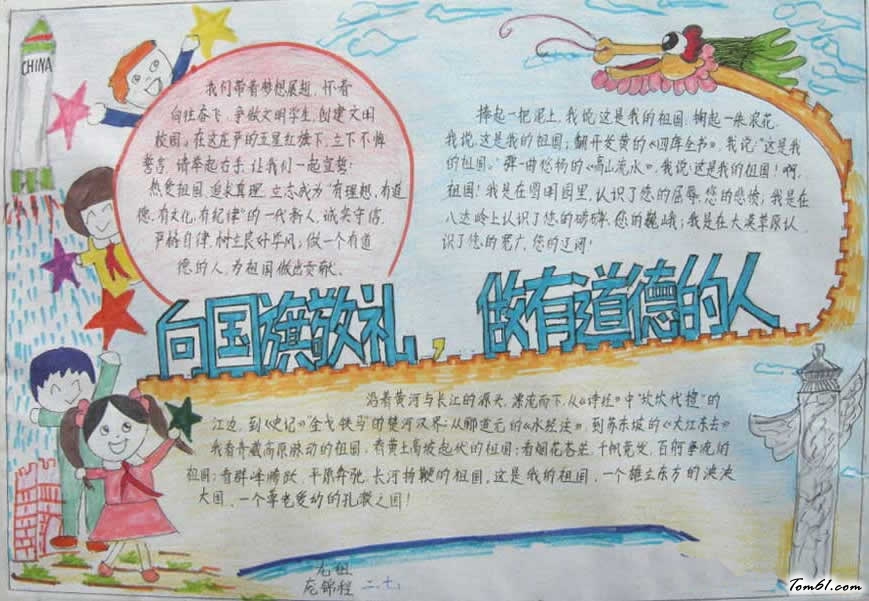 CHINA
我们带着梦想展翅，怀着
向往奋飞，争做文明学生，创建文明
校园。在这庄严的五星红旗下，立下不悔
誓言，请举起右手，让我们一起宣誓：
热爱祖国，追求真理，立志成为“有理想，有道
德，有文化，有纪律”的一代新人，诚实守信，
严格自律，树立良好学风；做一个有道
德的人，为祖国做出贡献。
捧起一把泥土，我说这是我的祖国，掬起一朵浪花，
我说，这是我的祖国；翻开发黄的《四库全书》，我说：“这是我
的祖国。”弹一曲悠扬的《高山流水》，我说这是我的祖国！啊，
祖国！我是在圆明园里，认识了您的屈辱，您的悲愤；我是在
八达岭上认识了您的磅礴，您的巍峨；我是在大漠草原认
识了您的宽广，您的辽阔！
向国旗敬礼，做有道德的人
沿着黄河与长江的源头，漂流而下，从《诗经》中“坎坎伐檀”的
江边，到《史记》“金戈铁马”的楚河汉界；从郦道元的《水经注》，到苏东坡的《大江东去》
我看青藏高原脉动的祖国，看黄土高坡起伏的祖国；看烟花苍茫，千帆竞发，百舸争流的
祖国；看群峰腾跃，平原奔驰，长河扬鞭的祖国。这是我的祖国，一个雄立东方的泱泱
大国，一个尊老爱幼的礼仪之国！
龙锦程 二.七
Tom61.com